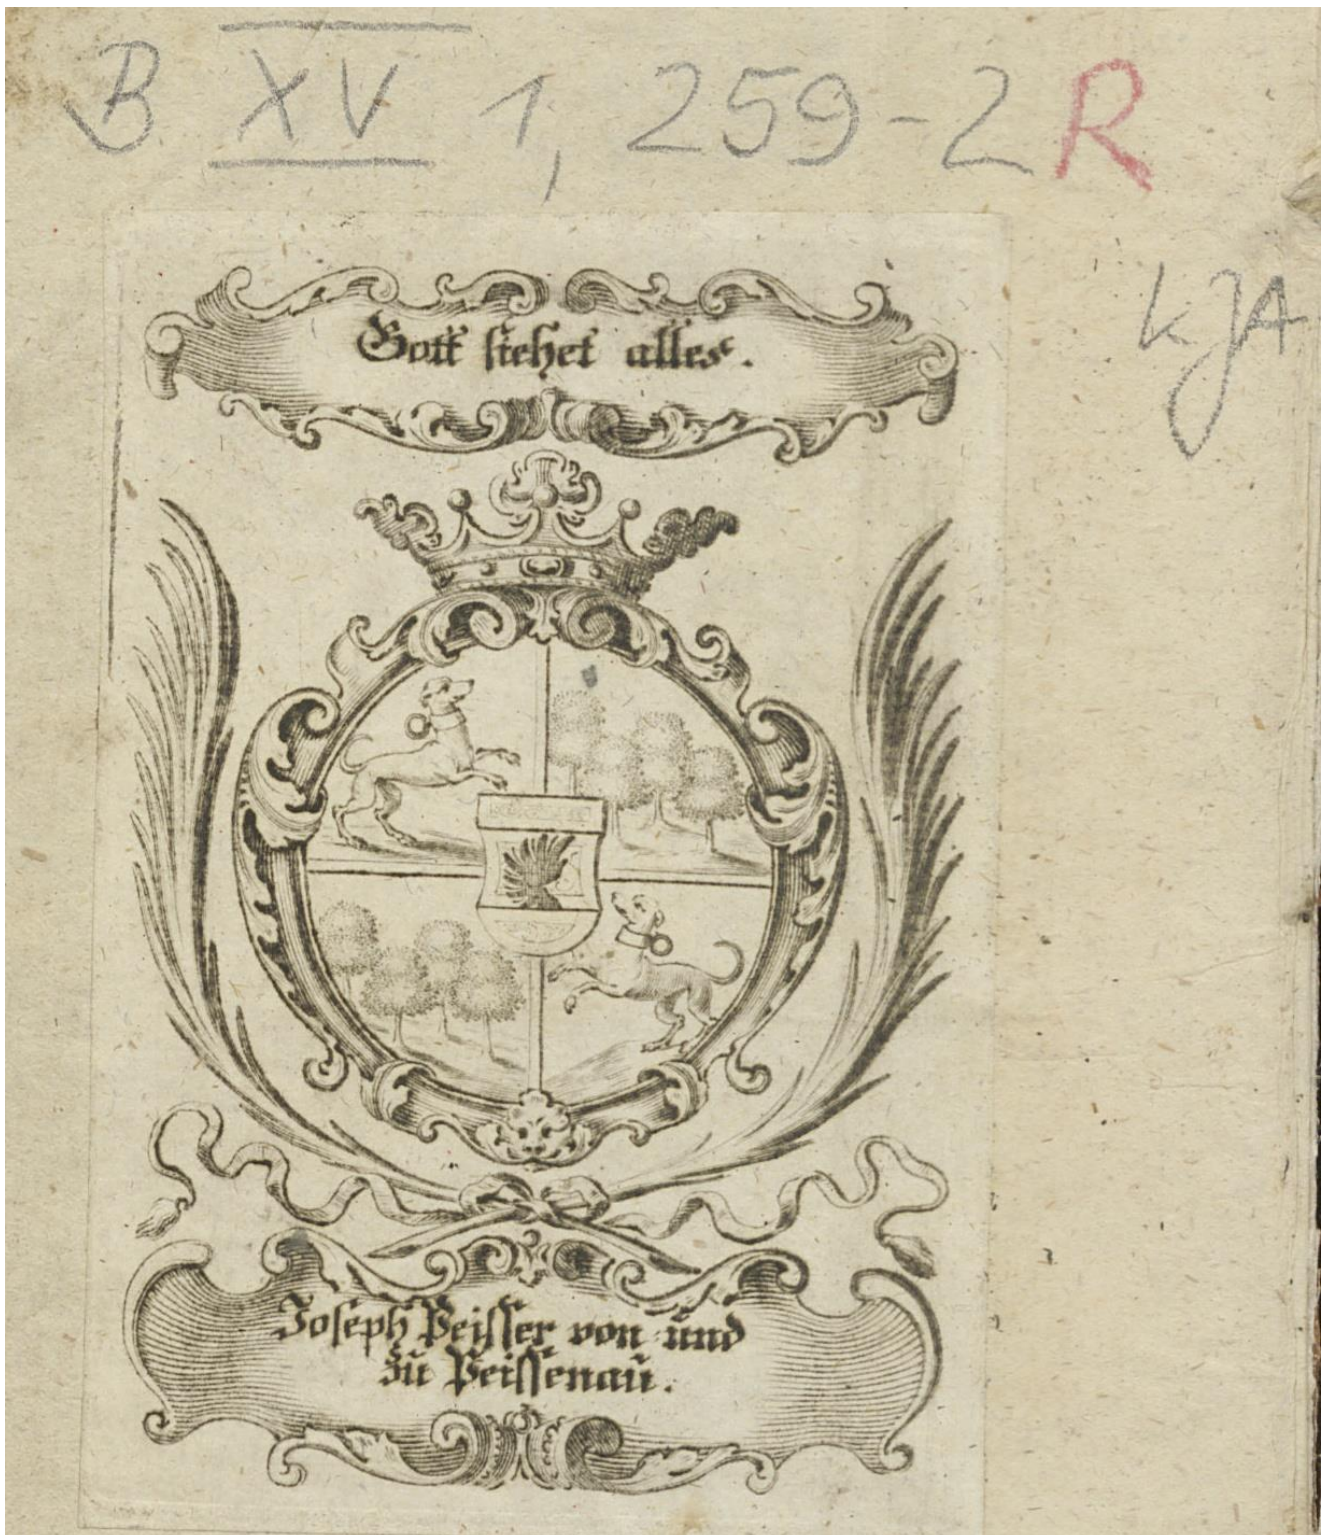 B XV 1, 259-2 R
kJA
Gott siehet alles.
Joseph Peisser von und
zu Peissenau.